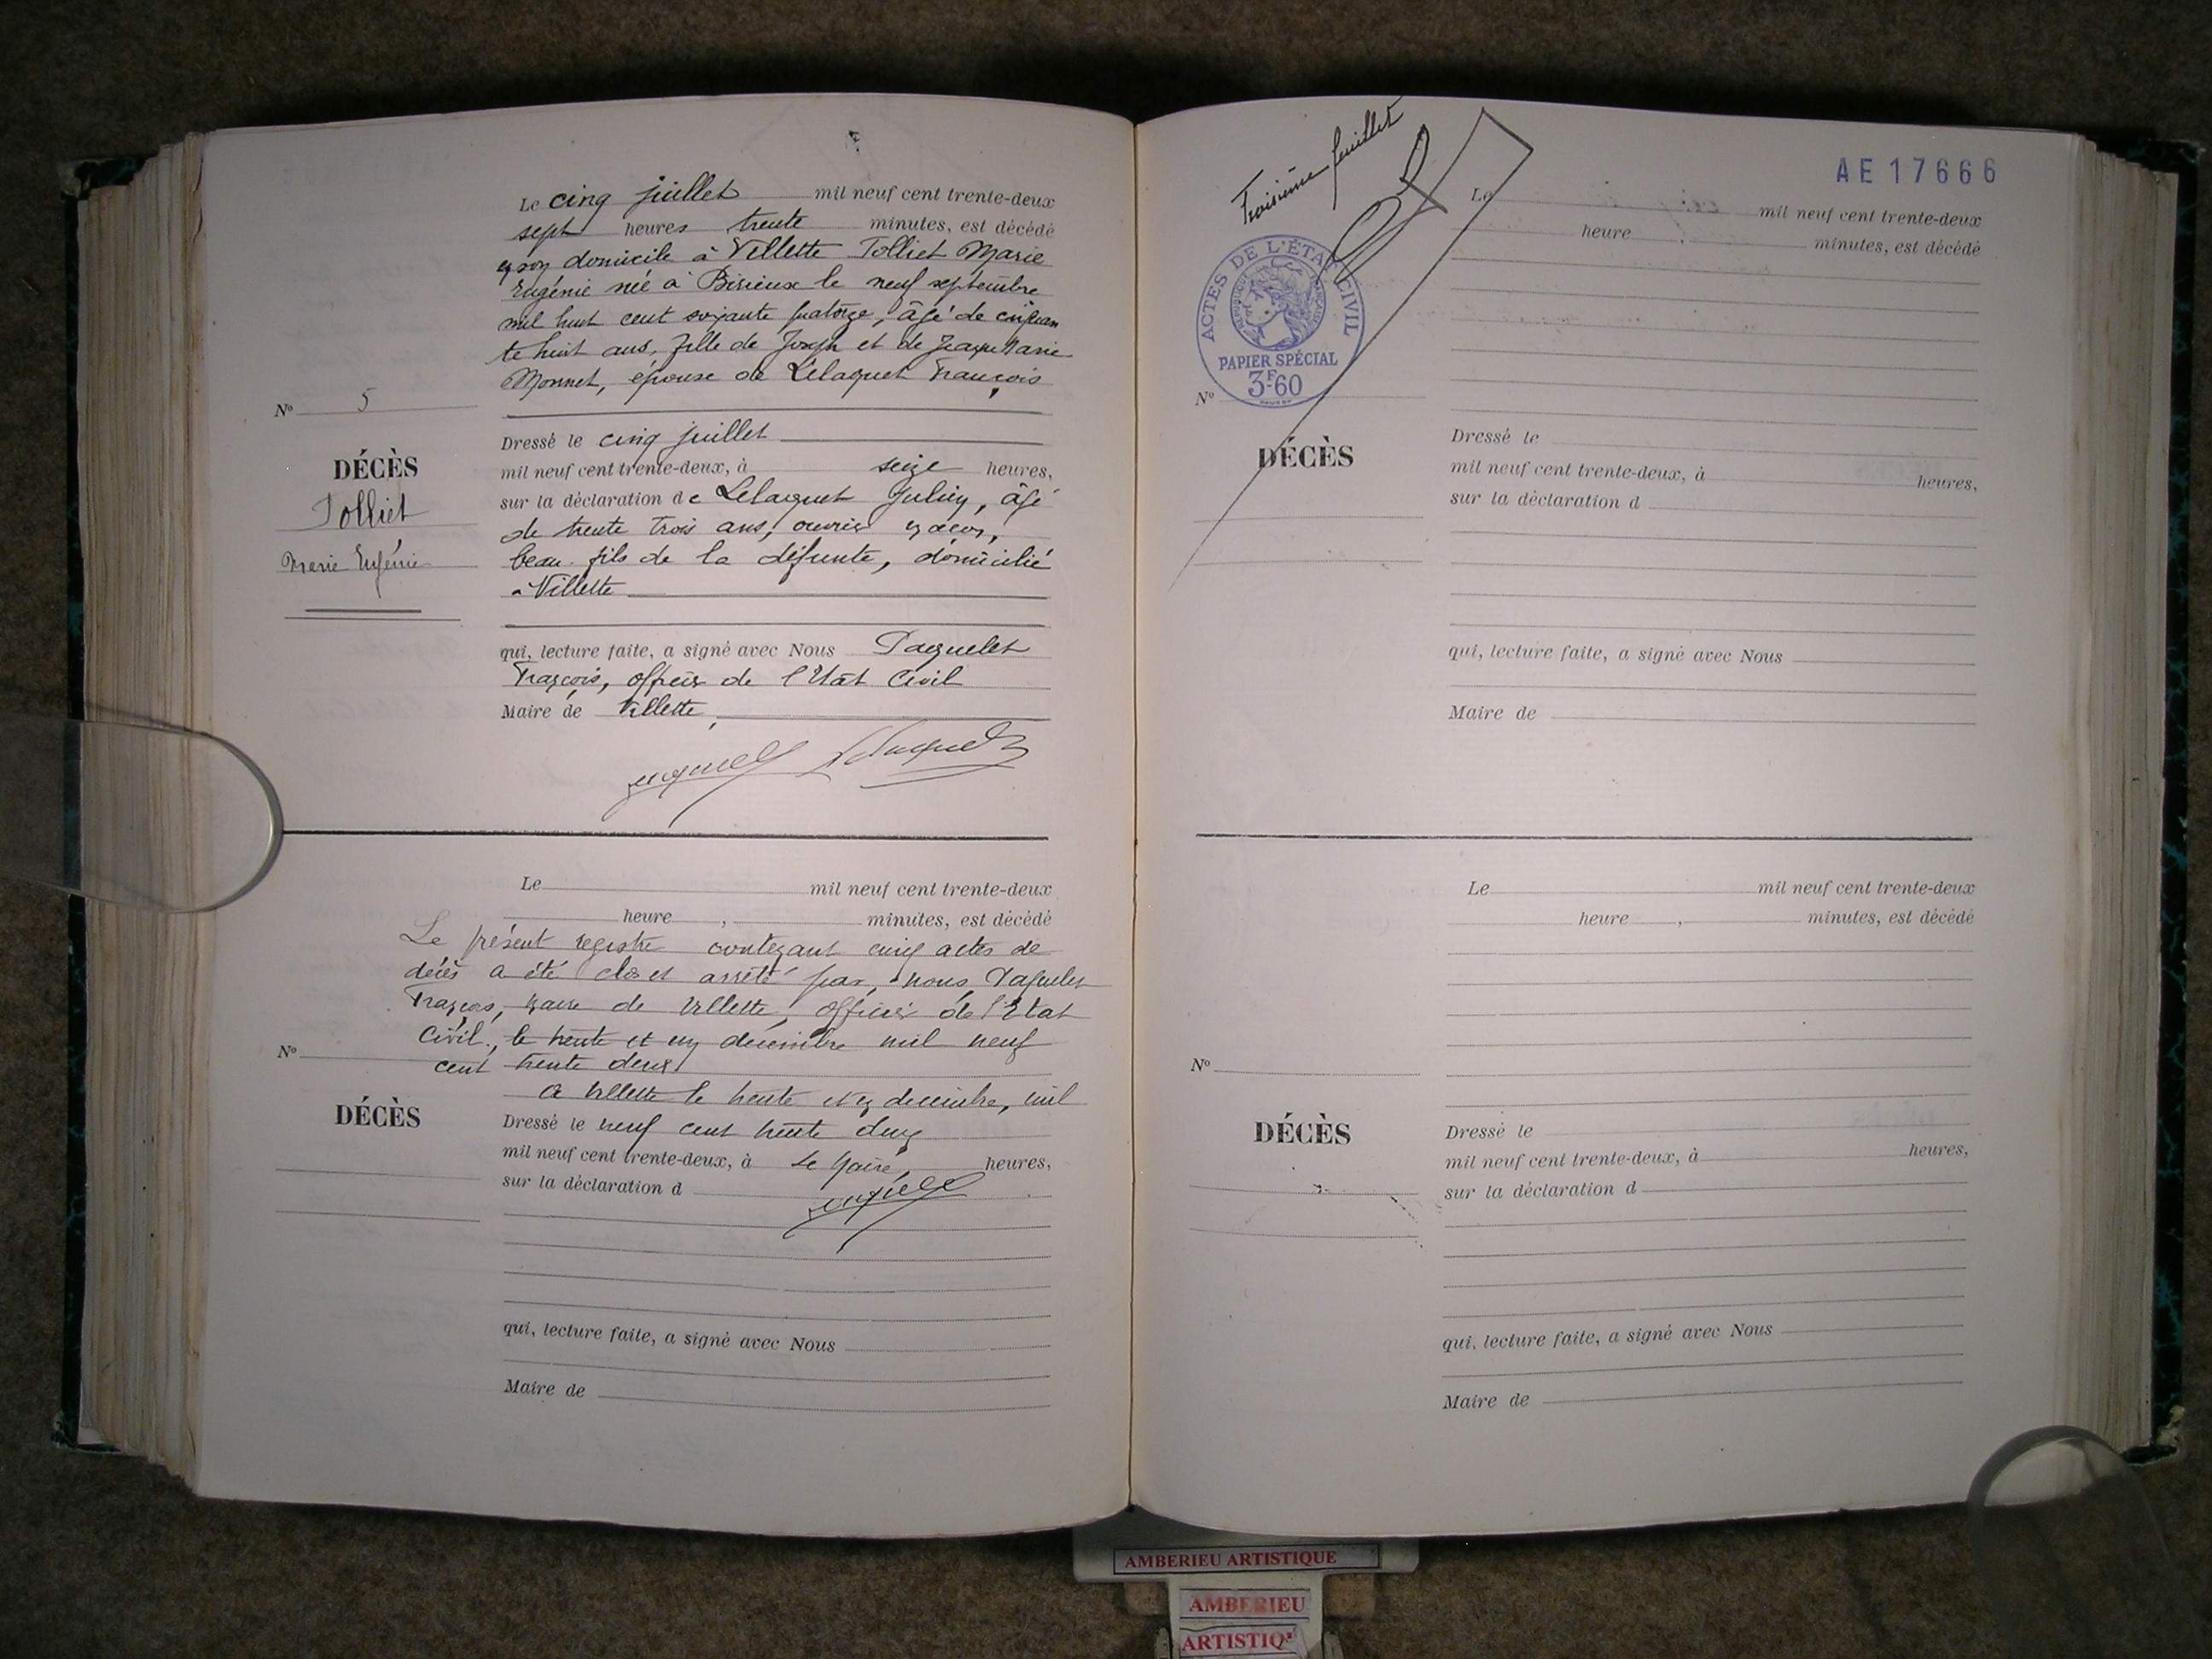 Le cinq juillet mil neuf cent trente-deux
sept heures trente minutes, est décédé
en son domicile à Villette Tolliet Marie
Eugénie née à Birieux le neuf septembre
mil huit cent soixante quatorze, âgé de cinquan
te huit ans, fille de Joseph et de Jeanne Marie
Monnet, épouse de Lelaquet François
Nº 5
DÉCÈS
Tolliet
Marie Eugénie
Dressé le cinq juillet
mil neuf cent trente-deux, à seize heures,
sur la déclaration de Lelaquet Julien, âgé
de trente trois ans, ouvrier maçon,
beau-fils de la défunte, domicilié
à Villette
qui, lecture faite, a signé avec Nous Paquelet
François, officier de l'Etat Civil
Maire de Villette
Le mil neuf cent trente-deux
heure , minutes, est décédé
Le présent registre contenant cinq actes de
décès a été clos et arrêté par nous Paquelet
François, maire de Villette, officier de l'Etat
Civil, le trente et un décembre mil neuf
cent trente deux
A Villette le trente et un décembre, mil
Nº
DÉCÈS
Dressé le neuf cent trente deux
mil neuf cent trente-deux, à Le Maire, heures,
sur la déclaration d
qui, lecture faite, a signé avec Nous
Maire de
Troisième feuillet
AE 17666
ACTES DE L'ÉTAT CIVIL
RÉPUBLIQUE FRANÇAISE
PAPIER SPÉCIAL
3F60
Le mil neuf cent trente-deux
heure , minutes, est décédé
Nº
DÉCÈS
Dressé le
mil neuf cent trente-deux, à heures,
sur la déclaration d
qui, lecture faite, a signé avec Nous
Maire de
Le mil neuf cent trente-deux
heure , minutes, est décédé
Nº
DÉCÈS
Dressé le
mil neuf cent trente-deux, à heures,
sur la déclaration d
qui, lecture faite, a signé avec Nous
Maire de
AMBERIEU ARTISTIQUE
AMBERIEU
ARTISTIQ